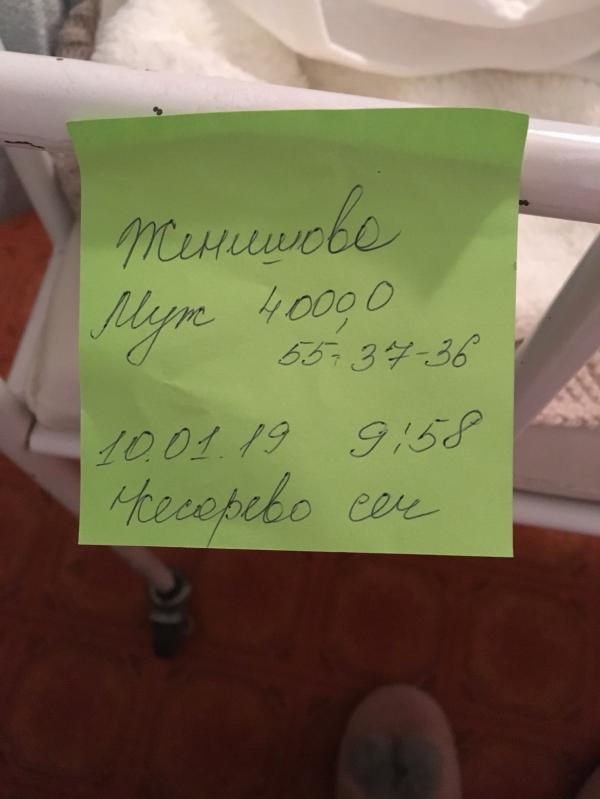 Женишова
Муж 4000,0
55-37-36
10.01.19 9:58
Кесарево сеч